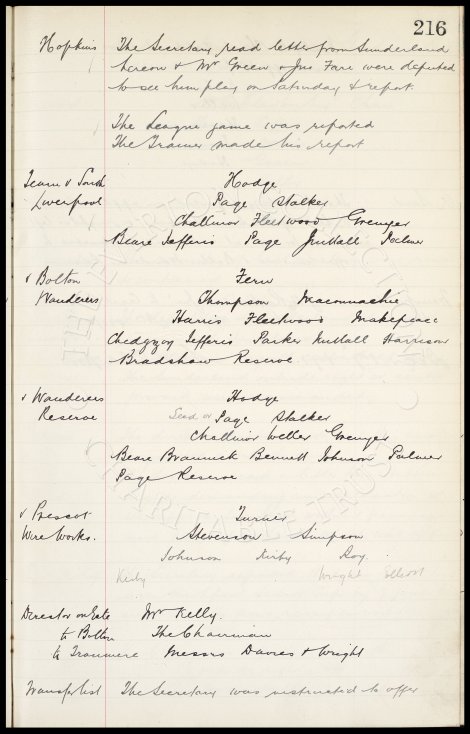 216
Hopkins The Secretary read letter from Sunderland
hereon & Mr Green & Jns Fare were deputed
to see him play on Saturday & report.
The League game was reported
The Trainer made his report
Team v South Liverpool
Hodge
Page Stalker
Challinor Fleetwood Grenyer
Beare Jefferis Page Nuttall Palmer
v Bolton Wanderers
Fern
Thompson Maconnachie
Harris Fleetwood Makepeace
Chedgzoy Jefferis Parker Nuttall Harrison
Bradshaw Reserve.
v Wanderers Reserve
Hodge
Page Stalker
Challinor Weller Grenyer
Beare Brannick Bennett Johnson Palmer
Page Reserve
v Prescot Wire Works.
Turner
Stevenson Simpson
Johnson Kirby Roy
Kirby Wright Elliott
Director on Gate Mr Kelly.
to Bolton The Chairman
to Tranmere Messrs Davies & Wright
Transfer list The Secretary was instructed to offer
THE EVERTON COLLECTION
CHARITABLE TRUST